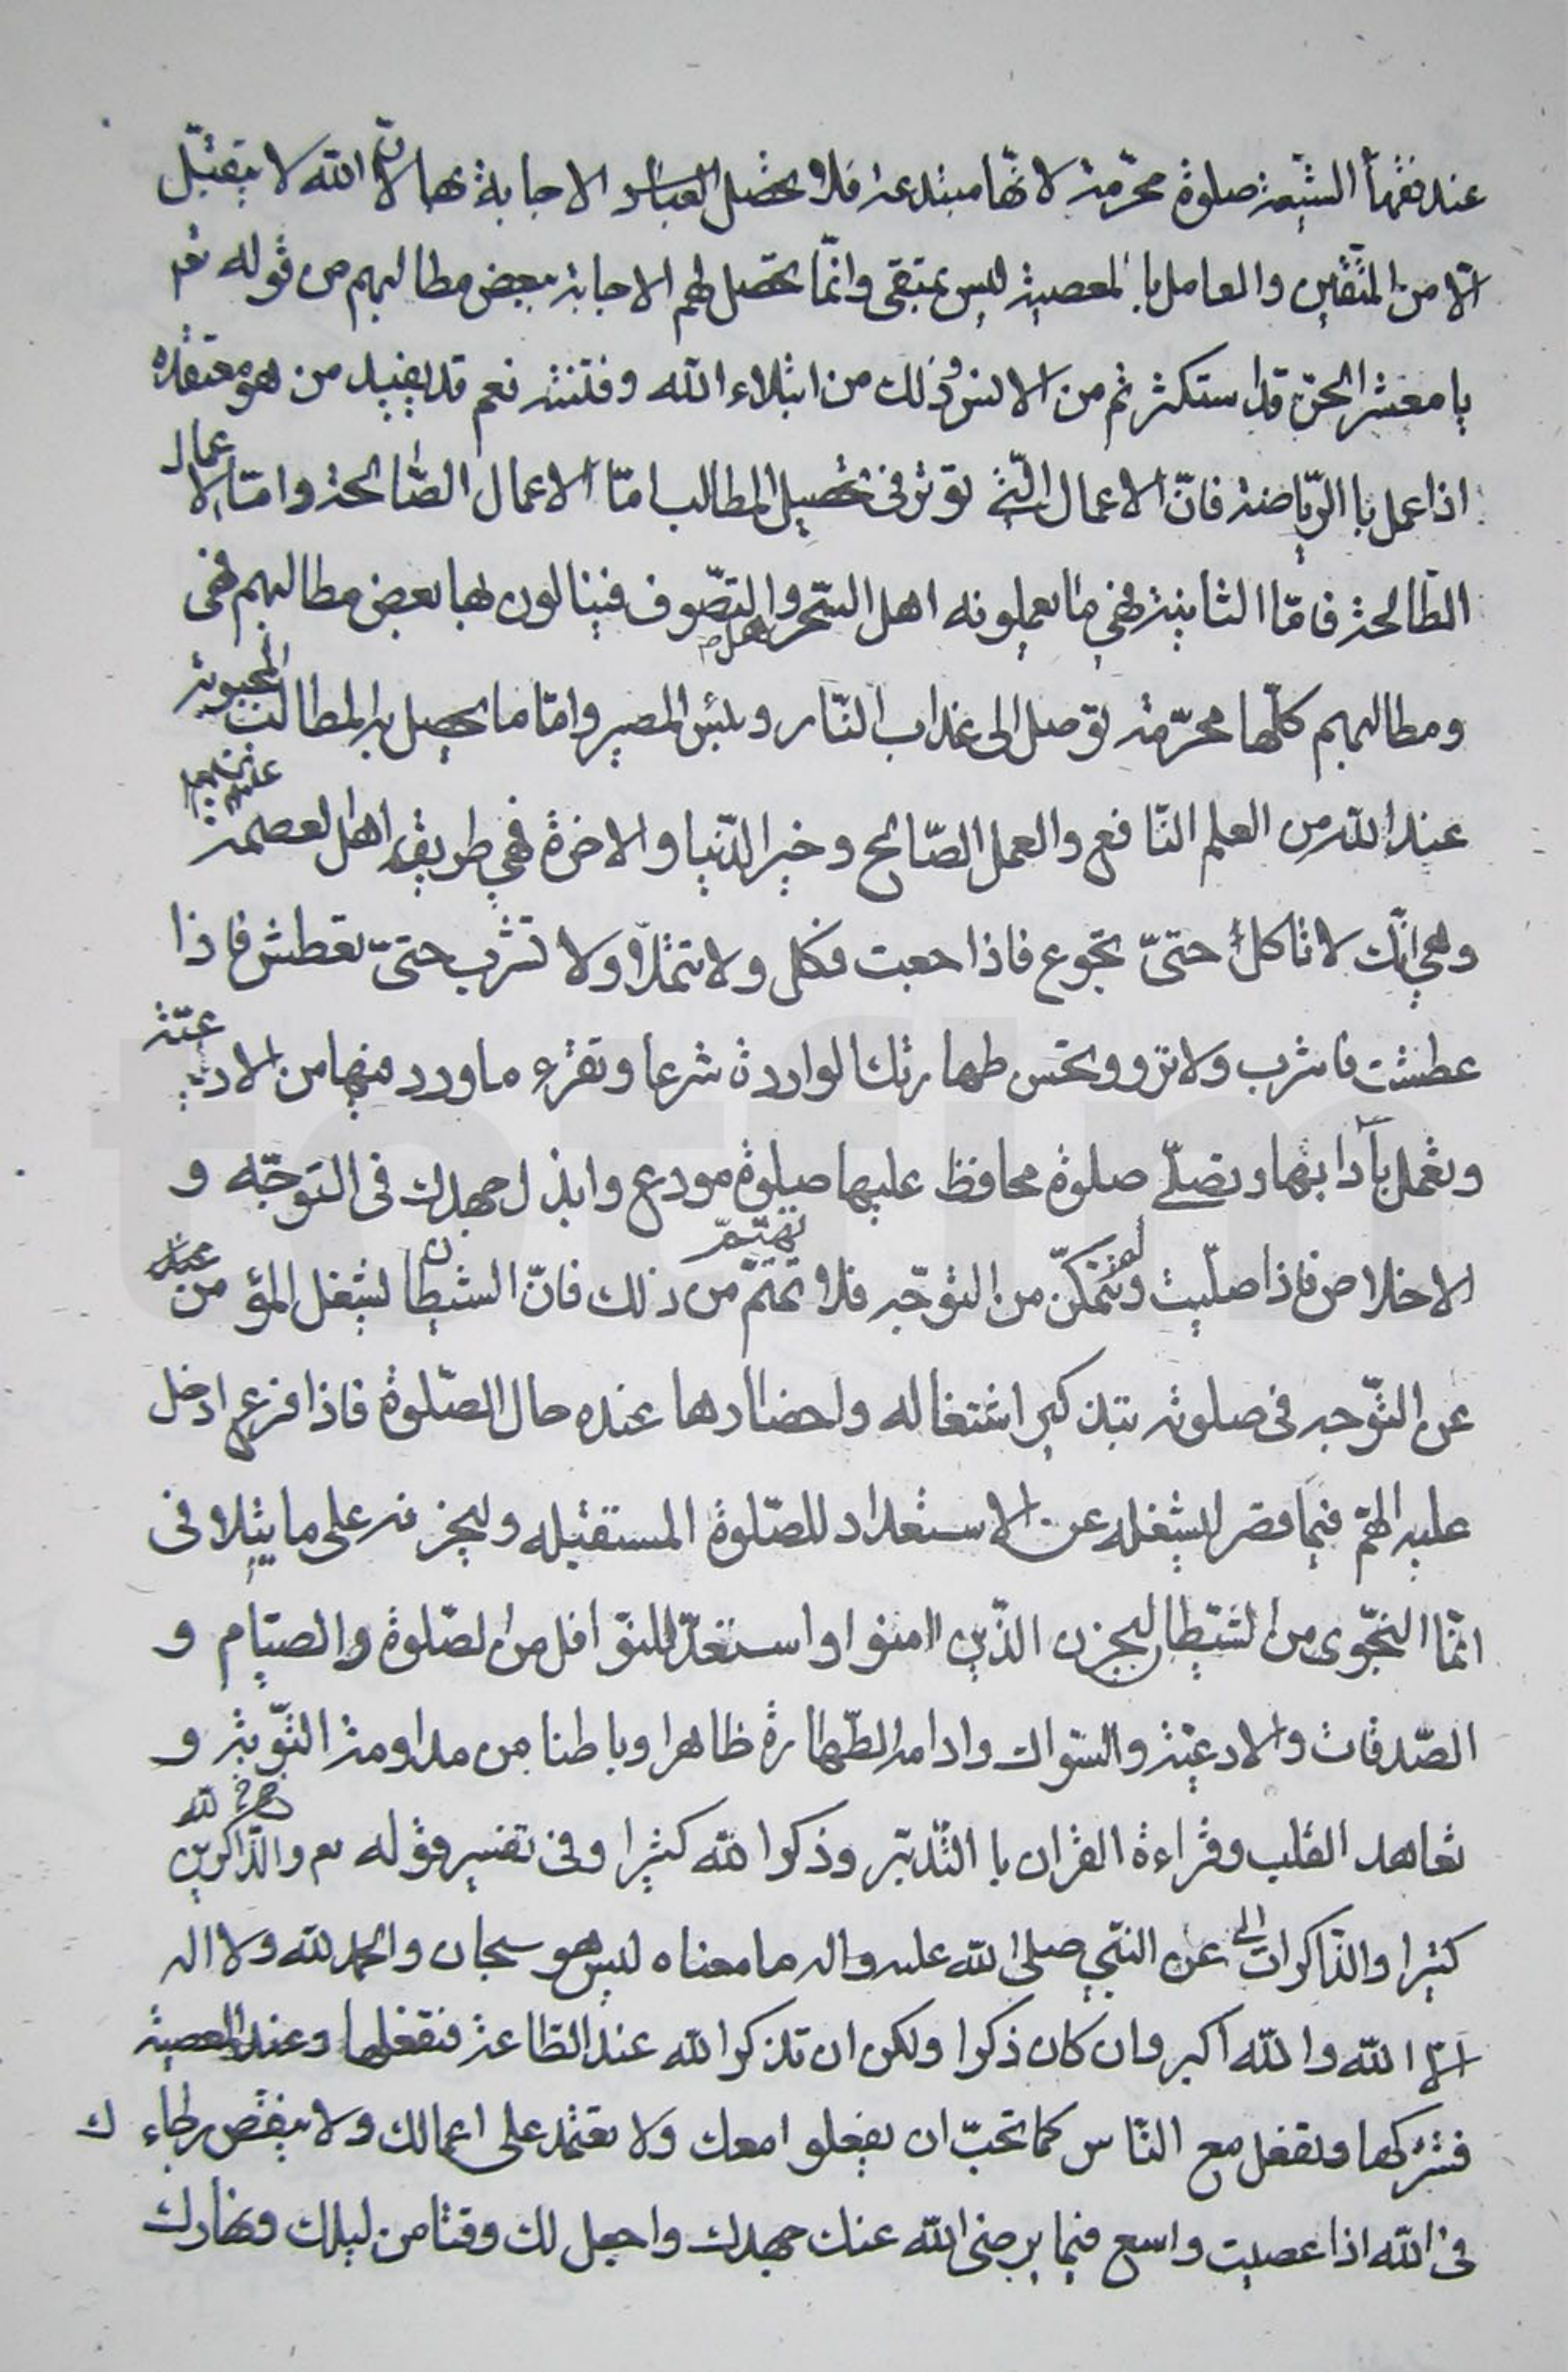 عند فقهاء الشيعة صلوة محرّمة لانّها مبتدعة فلا يحصل العباد الاجابة بها لانّ الله لا يتقبّل
الّا من المتّقين والعامل بالمعصية ليس بمتقى وانّما يحصل لهم الاجابة ببعض مطالبهم من قوله تع
يا معشر الجنّ قد استكثرتم من الانس وذلك من ابتلاء الله وفتنته نعم قد يفيد من هو معتقده
اذا عمل با الرّياضة فانّ الاعمال الّتى توثر فى تحصيل المطالب امّا الاعمال الصّالحة وامّا الاعمال
الطّالحة فامّا الثانية فهى ما يعملونه اهل السّحر واهل التصّوف فينالون بها بعض مطالبهم فهى
ومطالبهم كلّها محرّمة توصل الى عذاب النّار وبئس المصير وامّا ما يحصل به المطالب المحبوبة
عند الله من العلم النّافع والعمل الصّالح وخير الدّنيا والاخرة فهى طريقة اهل العصمة عليهم
وهى انّك لا تاكل حتىّ تجوع فاذا جعت فكل ولا تتملّا ولا تشرب حتىّ تعطش فاذا
عطشت فاشرب ولا ترو وتحسن طهارتك الواردة شرعا وتقرء ما ورد فيها من الادعيّة
وتعمل بآدابها وتصلّى صلوة محافظ عليها صلوة مودع وابذل جهدك فى التوجّه و
الاخلاص فاذا صلّيت ولم تتمكنّ من التوجّه فلا تهتمّ تهتمّ من ذلك فانّ الشيطان يشغل المؤمن
عن التوّجه فى صلوته بتذكير اشتغاله واحضارها عنده حال الصّلوة فاذا فرغ ادخل
عليه الهمّ فيما قصر ليشغله عن الاستعداد للصّلوة المستقبله وليحزنه على ما يتلا فى
انمّا النجّوى من الشيّطان ليحزن الذّين امنوا واستعدّ للنوّافل من الصّلوة والصيّام و
الصّدقات والادعيّة والسّواك وادامة الطّهارة ظاهرا وباطنا من مداومة التوّبة و
تعاهد القلب وقراءة القران با التّدبّر وذكر الله كثيرا وفى تفسير قوله تع والذّاكرين الله
كثيرا والذّاكرات الى عن النبّى صلى الله عليه واله ما معناه ليس هو سبحان والحمد لله ولا اله
الّا الله والله اكبر وان كان ذكرا ولكن ان تذكر الله عند الطّاعة فتفعلها وعند المعصية
فتتركها وتفعل مع النّاس كما تحبّ ان يفعلوا معك ولا تعتمد على اعمالك ولا ينقص رجاءك
فى الله اذا عصيت واسع فيما يرضى الله عنك جهدك واجعل لك وقتا من ليلك ونهارك